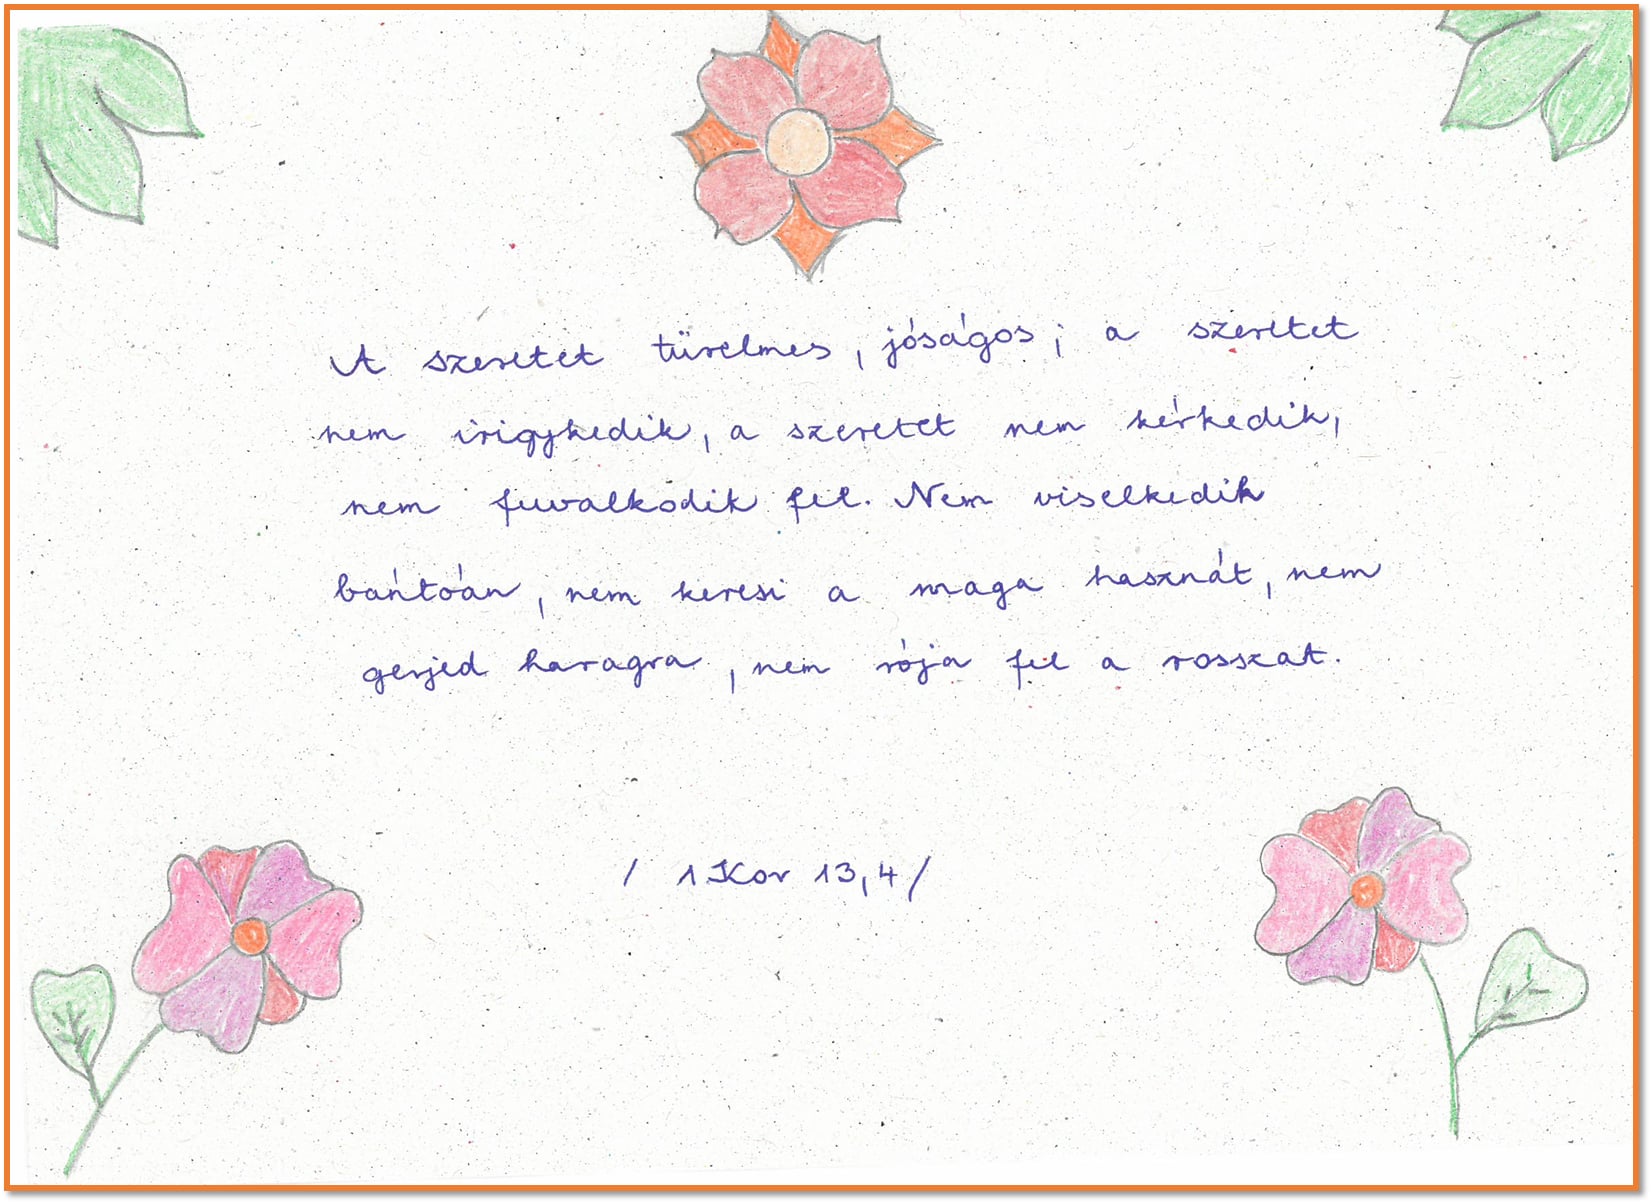 A szeretet türelmes, jóságos; a szeretet
nem irigykedik, a szeretet nem kérkedik,
nem fuvalkodik fel. Nem viselkedik
bántóan, nem keresi a maga hasznát, nem
gerjed haragra, nem rója fel a rosszat.
/ 1 Kor 13,4/